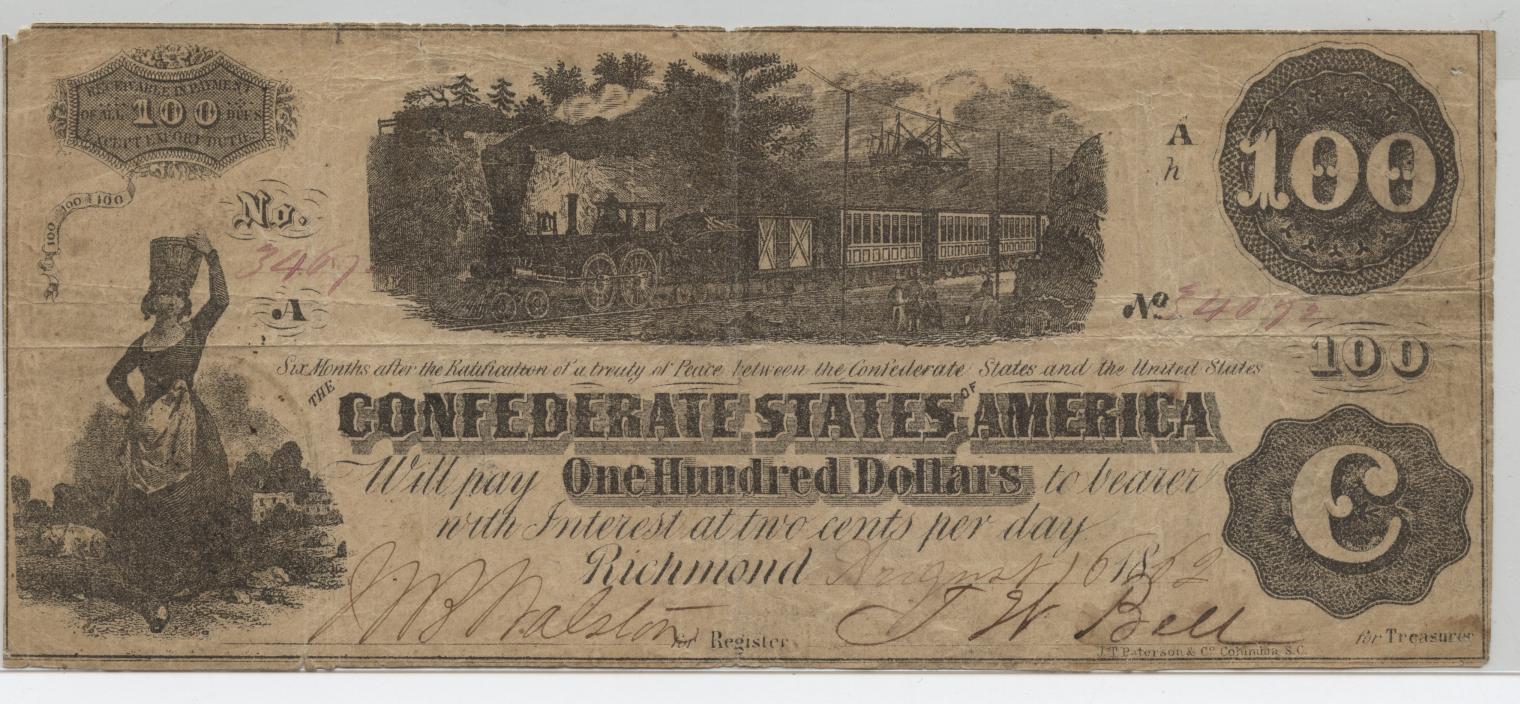 RECEIVABLE IN PAYMENT
OF ALL 100 DUES
EXCEPT EXPORT DUTIES
100 100 100
No.
A
A
h
100
No
100
Six Months after the Ratification of a treaty of Peace between the Confederate States and the United States
THE CONFEDERATE STATES OF AMERICA
Will pay One Hundred Dollars to bearer
with Interest at two cents per day
C
Richmond August 16 1862
for Register
T W Bell
for Treasurer
J.T. Paterson & Co. Columbia, S.C.